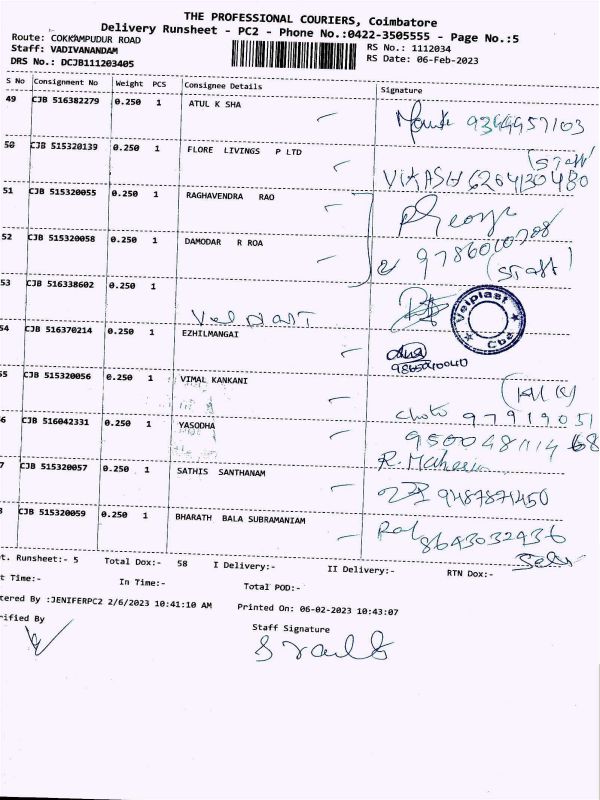 THE PROFESSIONAL COURIERS, Coimbatore
Delivery Runsheet - PC2 - Phone No.:0422-3505555 - Page No.:5
Route: COKKAMPUDUR ROAD
RS No.: 1112034
Staff: VADIVANANDAM
RS Date: 06-Feb-2023
DRS No.: DCJB111203405
S No Consignment No Weight PCS Consignee Details Signature
49 CJB 516382279 0.250 1 ATUL K SHA
50 CJB 515320139 0.250 1 FLORE LIVINGS P LTD
(STAFF
VIKASH 6264130480
51 CJB 515320055 0.250 1 RAGHAVENDRA RAO
52 CJB 515320058 0.250 1 DAMODAR R ROA
(STAFF)
53 CJB 516338602 0.250 1
Velplast
Cbe
54 CJB 516370214 0.250 1 EZHILMANGAI
55 CJB 515320056 0.250 1 VIMAL KANKANI
6 CJB 516042331 0.250 1 YASODHA
7 CJB 515320057 0.250 1 SATHIS SANTHANAM
8 CJB 515320059 0.250 1 BHARATH BALA SUBRAMANIAM
8643032436
t. Runsheet:- 5 Total Dox:- 58 I Delivery:- II Delivery:- RTN Dox:-
t Time:- In Time:- Total POD:-
tered By :JENIFERPC2 2/6/2023 10:41:10 AM Printed On: 06-02-2023 10:43:07
rified By
Staff Signature